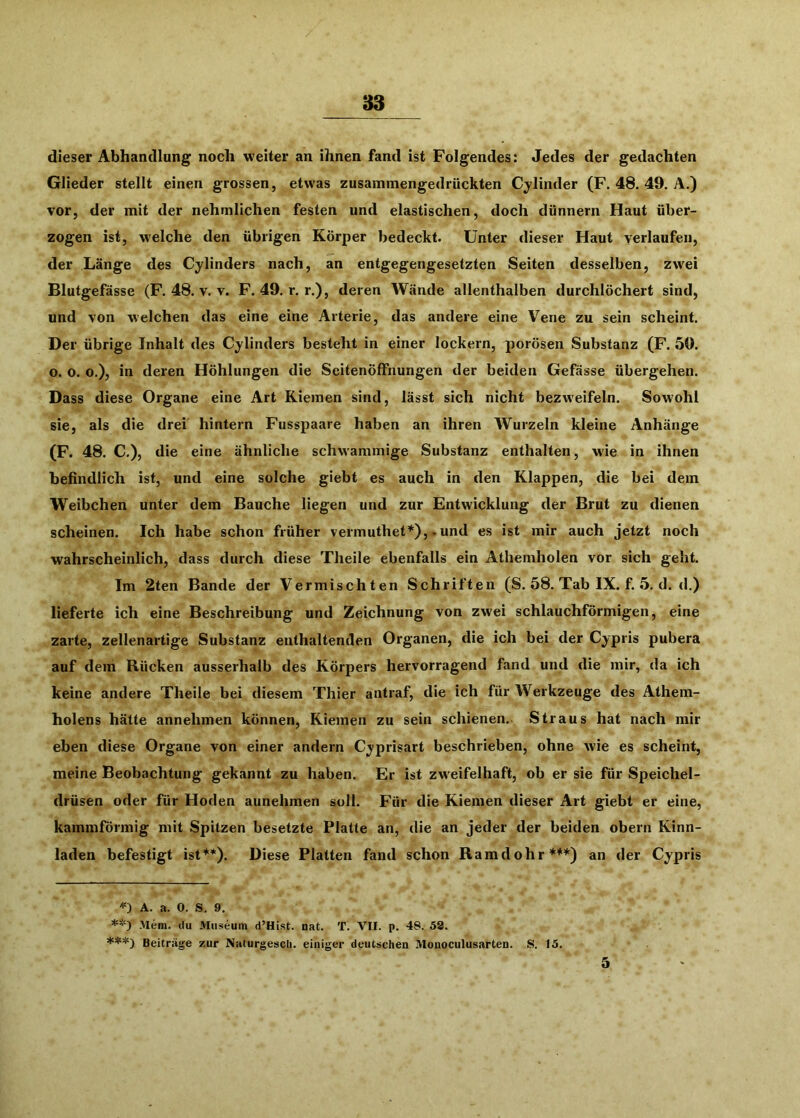 33
dieser Abhandlung noch weiter an ihnen fand ist Folgendes: Jedes der gedachten
Glieder stellt einen grossen, etwas zusammengedrückten Cylinder (F. 48. 49. A.)
vor, der mit der nehmlichen festen und elastischen, doch dünnern Haut über-
zogen ist, welche den übrigen Körper bedeckt. Unter dieser Haut verlaufen,
der Länge des Cylinders nach, an entgegengesetzten Seiten desselben, zwei
Blutgefässe (F. 48. v. v. F. 49. r. r.), deren Wände allenthalben durchlöchert sind,
und von welchen das eine eine Arterie, das andere eine Vene zu sein scheint.
Der übrige Inhalt des Cylinders besteht in einer lockern, porösen Substanz (F. 50.
o. o. o.), in deren Höhlungen die Seitenöffnungen der beiden Gefässe übergehen.
Dass diese Organe eine Art Kiemen sind, lässt sich nicht bezweifeln. Sowohl
sie, als die drei hintern Fusspaare haben an ihren Wurzeln kleine Anhänge
(F. 48. C.), die eine ähnliche schwammige Substanz enthalten, wie in ihnen
befindlich ist, und eine solche giebt es auch in den Klappen, die bei dem
Weibchen unter dem Bauche liegen und zur Entwicklung der Brut zu dienen
scheinen. Ich habe schon früher vermuthet*), und es ist mir auch jetzt noch
wahrscheinlich, dass durch diese Theile ebenfalls ein Athemholen vor sich geht.
Im 2ten Bande der Vermischten Schriften (S. 58. Tab IX. f. 5. d. d.)
lieferte ich eine Beschreibung und Zeichnung von zwei schlauchförmigen, eine
zarte, zellenartige Substanz enthaltenden Organen, die ich bei der Cypris pubera
auf dem Rücken ausserhalb des Körpers hervorragend fand und die mir, da ich
keine andere Theile bei diesem Thier antraf, die ich für Werkzeuge des Athem-
holens hätte annehmen können, Kiemen zu sein schienen. Straus hat nach mir
eben diese Organe von einer andern Cyprisart beschrieben, ohne wie es scheint,
meine Beobachtung gekannt zu haben. Er ist zweifelhaft, ob er sie für Speichel-
drüsen oder für Hoden aunehmen soll. Für die Kiemen dieser Art giebt er eine,
kammförmig mit Spitzen besetzte Platte an, die an jeder der beiden obern Kinn-
laden befestigt ist**). Diese Platten fand schon Ramdohr***) an der Cypris
*) A. a. O. S. 9.
**) Mém. du Muséum d'Hist. nat. T. VII. p. 48. 52.
***) Beiträge zur Naturgesch. einiger deutschen Monoculusarten. S. 15.
5